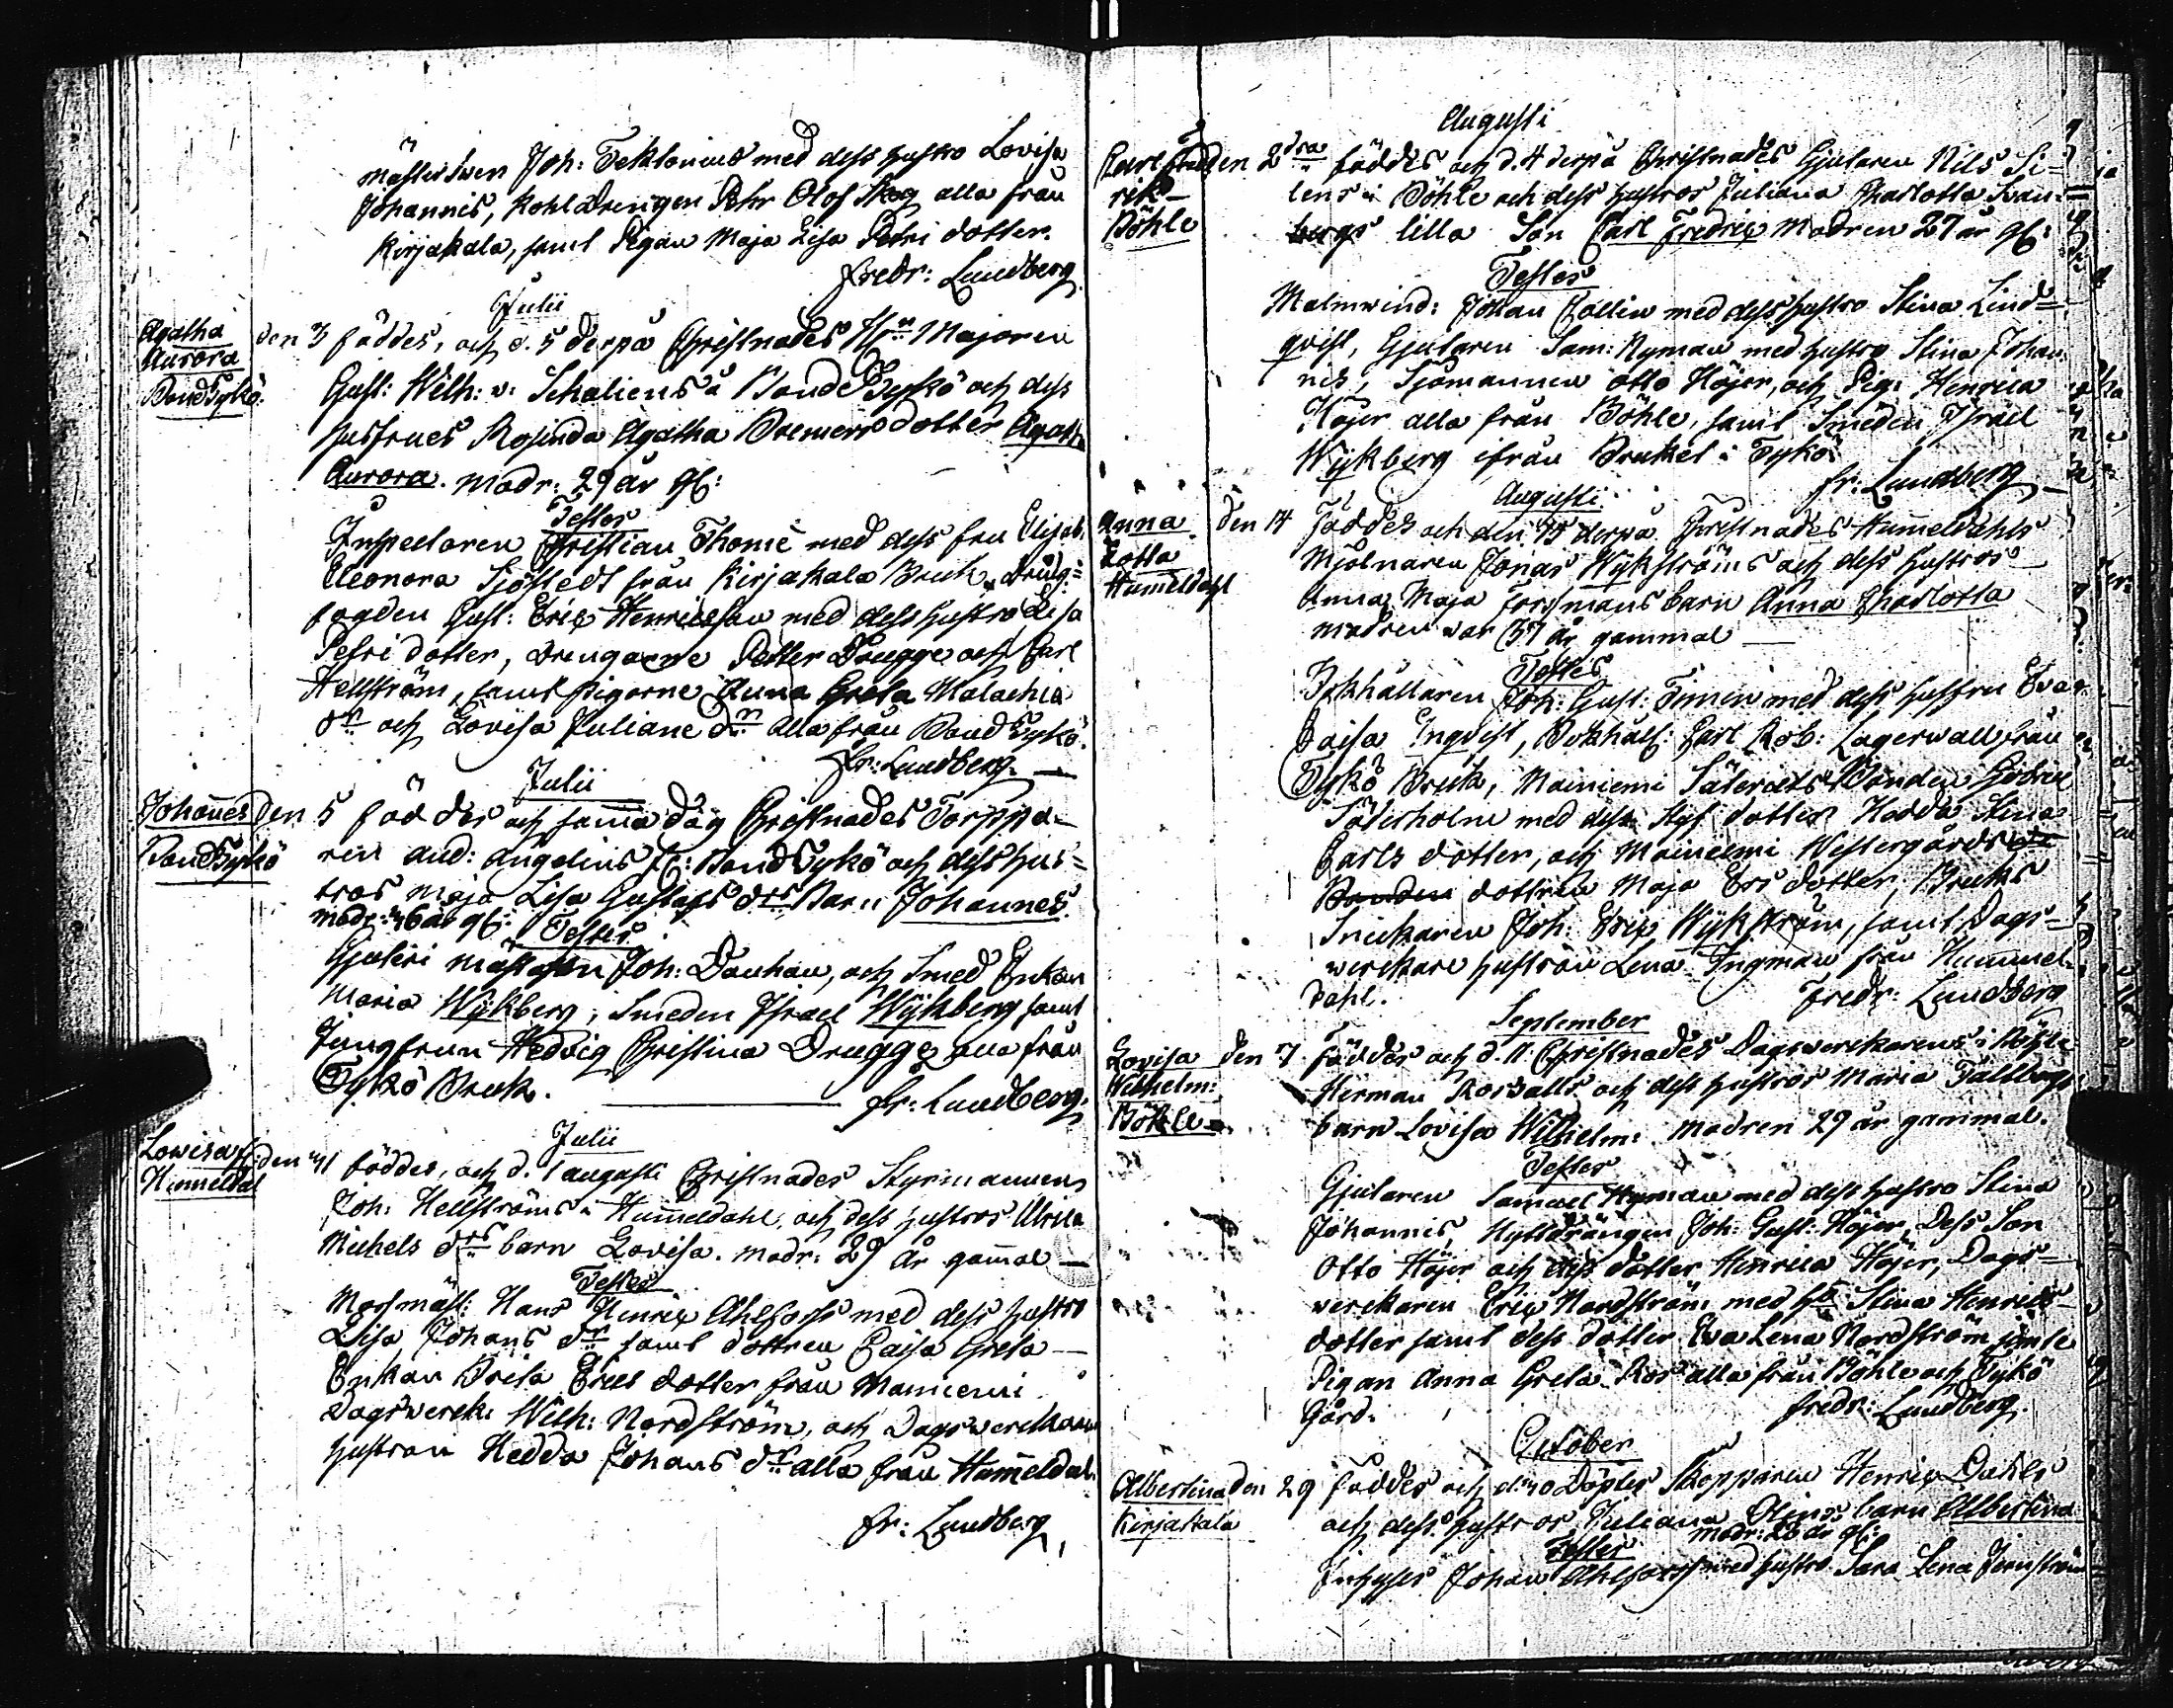 mästersven Joh: Teklonius med dess hustro Lovisa
Johannis, Kohldrengen Pehr Olof Skog alla från
Kirjakala, samt Pigan Maja Lisa Petri dotter.
Fredr: Lundberg
Julii
Agatha
Aurora
BondTykö
den 3 föddes, och d. 5 derpå Christnades Hrn Majoren
Gust: Wilh: v: Schaliens å BondeTykö och dess
husfrues Rosinda Agatha Bremers dotter Agatha
Aurora. modr: 29 år gl:
Testes
Inspectoren Christian Thomé med dess fru Elisab.
Eleonora Sjöstedt från Kirjakala Bruk, dreng-
fogden Gust: Eric Henricsson med dess hustro Lisa
Petri dotter, drengarne Petter Drugge och Carl
Hellström, samt pigorne Anna Greta Malachia
dr och Lovisa Juliane dr alla från BondTykö.
Fr: Lundberg.
Julii
Johannes
BondTykö
den 5 föddes och samma dag Christnades Torppa-
ren And: Angelins fr: BondTykö och dess hus-
tros Maja Lisa Gustafs drs Barn Johannes.
modr: 46 år gl: Testes
Gjuteri mästaren Joh: Dauhau, och Smed Enkan
Maria Wÿkberg, Smeden Israel Wÿkberg samt
Jungfrun Hedvig Christina Drugge alla från
Tykö Bruk.
Fr: Lundberg.
Julii
Lowisa
Hummeldal
den 31 föddes, och d. 1 augusti Christnades Styrmannens
Joh: Hellströms i Hummeldahl, och dess hustros Ulrica
Michels drs barn Lovisa. modr: 29 år gamal
Testes
Masmäst: Hans Henric Ahlfors med dess hustro
Lisa Johans dr samt dottren Caisa Greta
Enkan Brita Erics dotter från Mainiemi
Dagsverck: Wilh: Nordström, och Dagsverckare
hustron Hedda Johans dr alla från Hummeldal.
Fr: Lundberg
Augusti
Carl Fred
rik
Böhle
den 2dra föddes och d. 4 derpå Christnades Gjutaren Nils Si-
lens i Böhle och dess hustros Juliana Charlotta Svan-
bergs lilla Son Carl Fredric modren 27 år gl:
Testes
Malmvind: Johan Collin med dess hustro Stina Lind-
qvist, Gjutaren Sam: Nyman med hustro Stina Johan
nis, Sjömannen Otto Höjer, och Pig: Henrica
Höjer alla från Böhle, samt Smeden Israel
Wÿkberg ifrån Bruket i Tykö.
Fr: Lundberg
Augusti
Anna
Lotta
Hummeldahl
den 14 Föddes och den 15 derpå Christnades Hummeldahls
Mjölnaren Jonas Wÿkströms och dess hustros
Anna Maja Forssmans barn Anna Charlotta
modren var 37 år gammal
Testes
Bokhållaren Joh: Gust: Timen med dess husfru Eva
Caisa Ingvist, Bokhåll: Carl Rob: Lagerwall från
Tykö Bruk, Mainiemi Säteriets Bonden
Säterholm med dess Styf dotter Hedda Stina
Carls dotter, och Mainiemi Westergårds
Bonden dottren Maja Ers dotter, Bruks
Snickaren Joh: Eric Wÿkström, samt Dags-
werckare hustron Lena Ingman från Hummel-
dahl.
Fredr: Lundberg
September
Lovisa
Wilhelm:
Böhle
den 7 föddes och d. 11 Christnades Dagsverckarens i Böhle
Herman Rosvalls och dess hustros Maria Talbergs
barn Lovisa Wilhelm: modren 29 år gammal.
Testes
Gjutaren Samuel Nyman med dess hustro Stina
Johannis, Hyttdrängen Joh: Gust: Höjer, Dess Son
Otto Höjer och dess dotter Henrica Höjer, Dags-
verckaren Eric Nordström med h: Stina Henrics
dotter samt dess dotter Eva Lena Nordström jämte
Pigan Anna Greta Ros alla från Böhle och Tykö
gård.
Fredr: Lundberg.
October
Albertina
Kirjakala
den 29 föddes och d. 30 Döptes Skepparen Henric Dahls
och dess hustros Juliana Olins barn Albertina
modr: 28 år gl:
Testes
Inhyses Johan Ahlfors med hustro Sara Lena Jernström